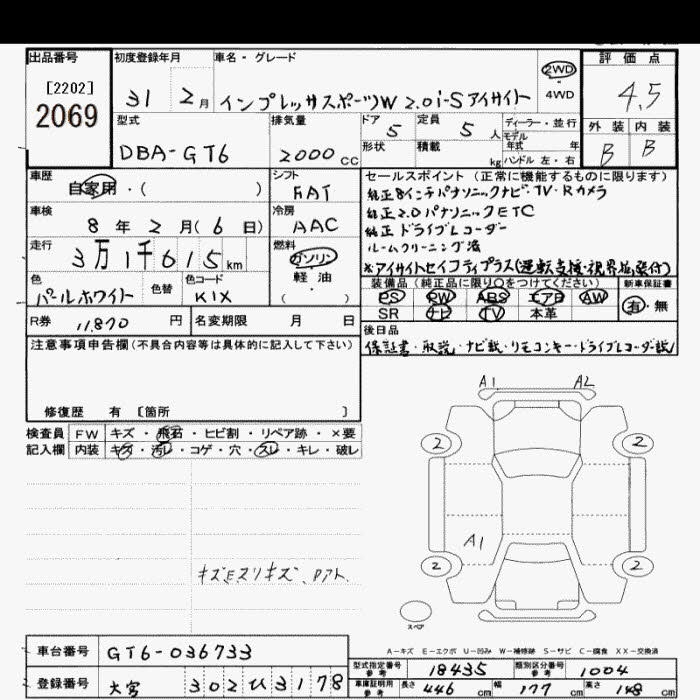 出品番号
[2202]
2069
初度登録年月
31 2月
車名・グレード
インプレッサスポーツW 2.0i-S アイサイト
2WD
4WD
評価点
4.5
外装 内装
B B
型式
DBA-GT6
排気量
2000 CC
ドア
5
定員
5 人
形状
積載
kg
ディーラー・並行
モデル
年式 年
ハンドル 左・右
車歴
自家用・( )
シフト
FAT
車検
8 年 2 月( 6 日)
冷房
AAC
走行
3万1千615 km
燃料
ガソリン
軽油
( )
色
パールホワイト
色替
色コード
K1X
R券
11,870 円
名変期限 月 日
セールスポイント (正常に機能するものに限ります)
純正8インチパナソニックナビ・TV・Rカメラ
純正2.0パナソニックETC
純正ドライブレコーダー
ルームクリーニング済
※アイサイトセイフティプラス(運転支援・視界拡張付)
装備品 (純正品に限り○をつけてください)
PS PW ABS エアB AW
SR ナビ TV 本革
新車保証書
有・無
後日品
保証書・取説・ナビ説・リモコンキー・ドライブレコーダー説
注意事項申告欄(不具合内容等は具体的に記入して下さい)
修復歴 有 [箇所 ]
検査員
記入欄
FW キズ・飛石・ヒビ割・リペア跡・×要
内装 キズ・汚レ・コゲ・穴・スレ・キレ・破レ
A1 A2
2 2
A1
2 2
スペア
A-キズ E-エクボ U-凹み W-補修跡 S-サビ C-腐食 XX-交換済
車台番号
GT6-036733
登録番号
大宮 302 ひ 3178
型式指定番号
参考
18435
類別区分番号
参考
1004
車庫証明用
参考
長さ 446 cm
幅 177 cm
高さ 148 cm